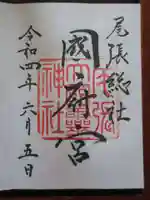 尾張総社
國府宮
令和四年六月五日